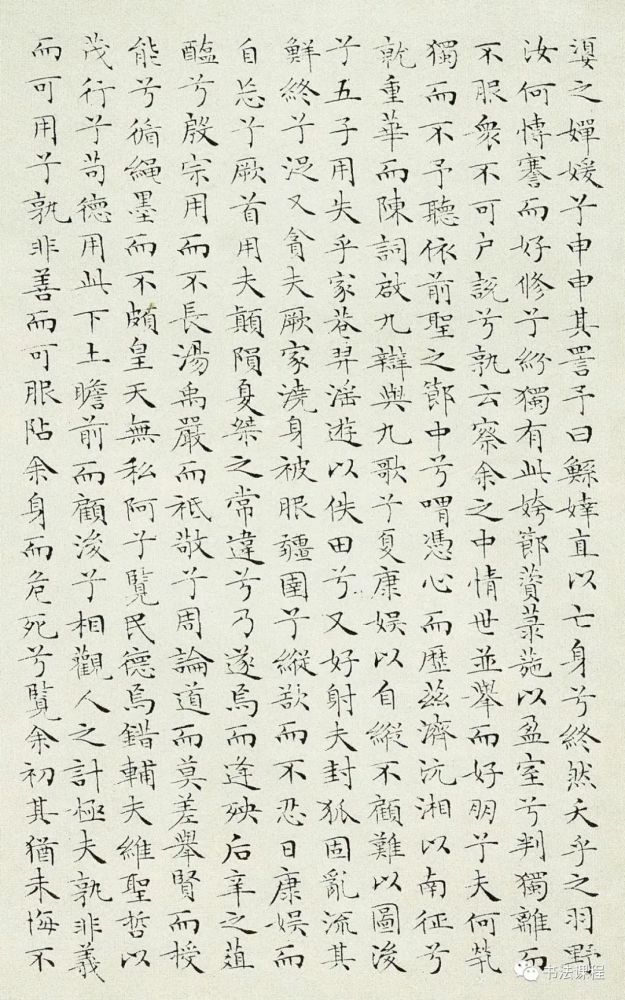 嬃之嬋媛兮申申其詈予曰鯀婞直以亡身兮終然夭乎之羽野
汝何博謇而好修兮紛獨有此姱節薋菉葹以盈室兮判獨離而
不服衆不可户說兮孰云察余之中情世並舉而好朋兮夫何煢
獨而不予聽依前聖之節中兮喟憑心而歷茲濟沅湘以南征兮
就重華而陳詞啟九辯與九歌兮夏康娛以自縱不顧難以圖後
兮五子用失乎家巷羿淫遊以佚田兮又好射夫封狐固亂流其
鮮終兮浞又貪夫厥家澆身被服疆圉兮縱欲而不忍日康娛而
自忘兮厥首用夫顛隕夏桀之常違兮乃遂焉而逢殃后辛之菹
醢兮殷宗用而不長湯禹嚴而祗敬兮周論道而莫差舉賢而授
能兮循繩墨而不頗皇天無私阿兮覽民德焉錯輔夫維聖哲以
茂行兮苟德用此下土瞻前而顧後兮相觀人之計極夫孰非義
而可用兮孰非善而可服阽余身而危死兮覽余初其猶未悔不
书法课程